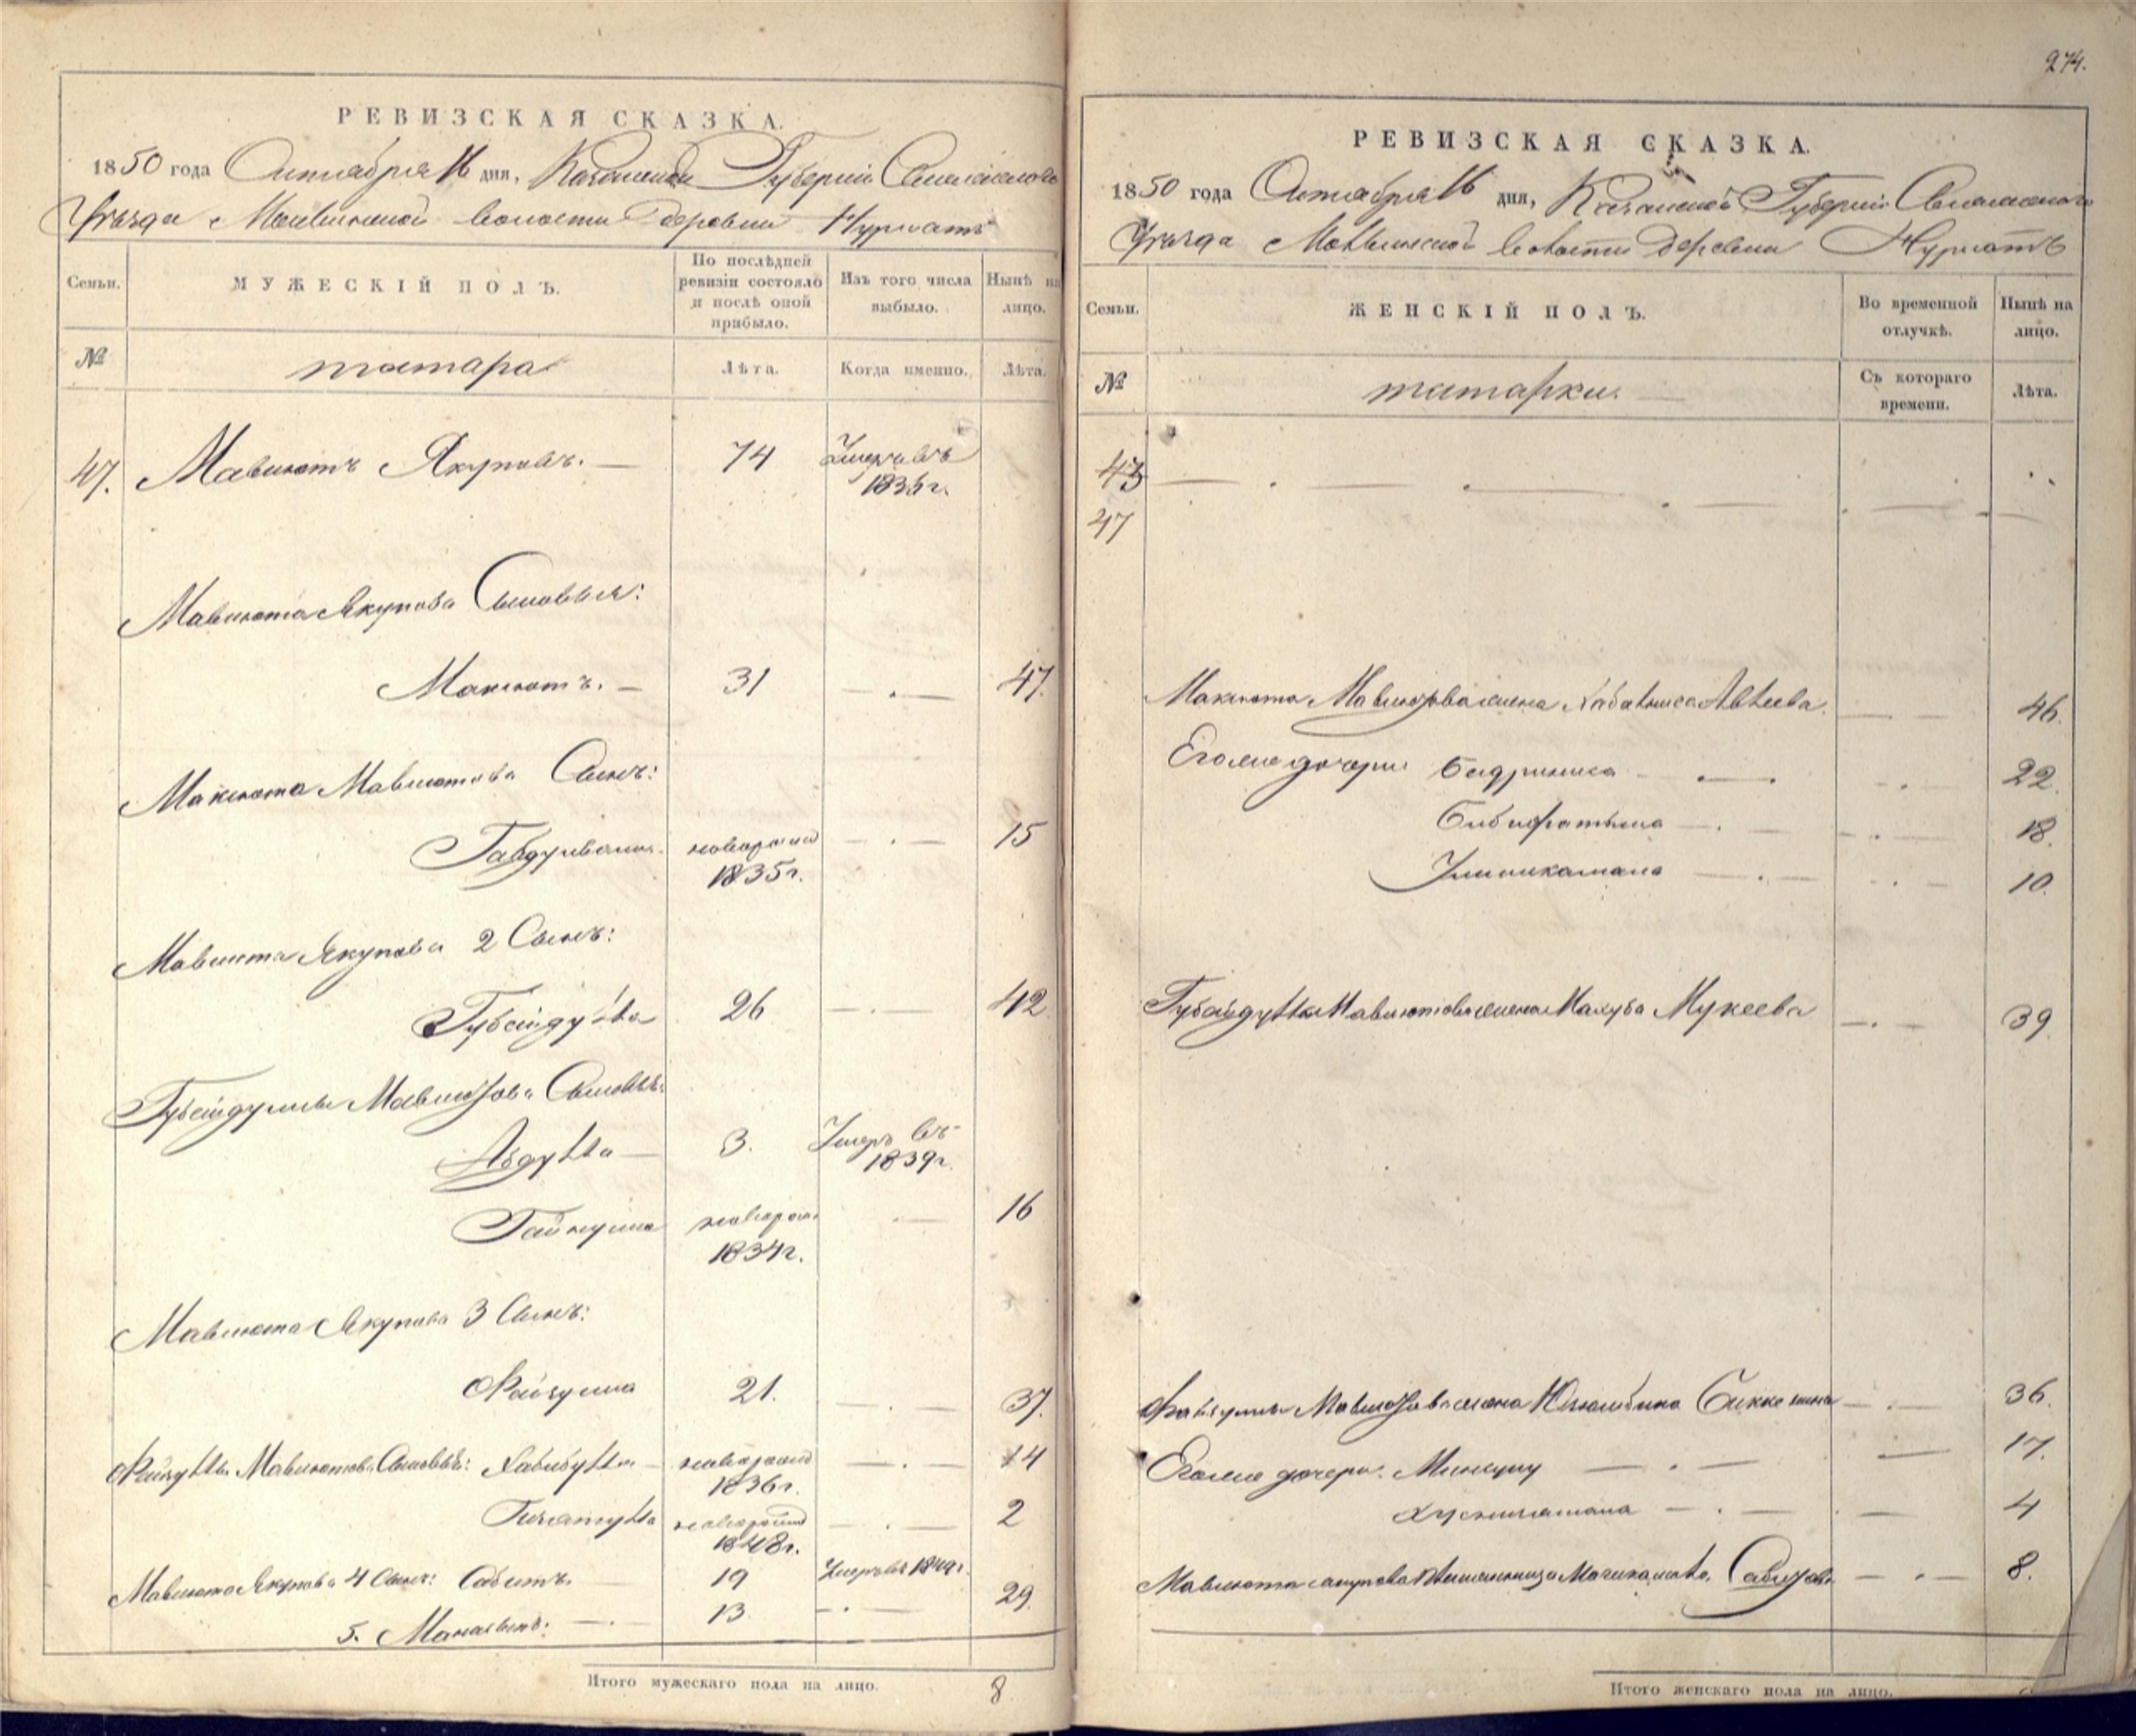 РЕВИЗСКАЯ СКАЗКА.
1850 года Октября 16 дня, Казанской Губернии Свіяжскаго
Уѣзда волости деревни Нурлатъ
Семьи. МУЖЕСКІЙ ПОЛЪ. По послѣдней ревизіи состояло и послѣ оной прибыло. Изъ того числа выбыло. Нынѣ на лицо.
№ татара Лѣта. Когда именно. Лѣта.
47. Мавлютъ Якуповъ. 74 Умеръ въ 1836 г.
Мавлюта Якупова Сыновья:
Максютъ. 31 47.
Максюта Мавлютова Сынъ:
Габдулвали. новорожд 1835 г. 15
Мавлюта Якупова 2 Сынъ:
Губайдулла 26 42
Губайдуллы Мавлютова Сыновья:
Абдулла 3. Умеръ въ 1839 г.
Гайнулла новорож. 1834 г. 16
Мавлюта Якупова 3 Сынъ:
Файзулла 21. 37.
Файзуллы Мавлютова Сыновья: Хабибулла новорожд 1836 г. 14
новорожд 1848 г. 2
Мавлюта Якупова 4 Сынъ: Сабитъ. 19 Умеръ въ 1849 г.
5. 13 29.
Итого мужескаго пола на лицо. 8
274.
РЕВИЗСКАЯ СКАЗКА.
1850 года Октября 16 дня, Казанской Губерніи Свіяжскаго
Уѣзда волости деревни Нурлатъ
Семьи. ЖЕНСКІЙ ПОЛЪ. Во временной отлучкѣ. Нынѣ на лицо.
№ татарки. Съ котораго времени. Лѣта.
47
Максюта Мавлютова жена 46.
Его же дочери Бадриниса 22.
Бибифатыма 18.
10.
Губайдуллы Мавлютова жена Махуба Мукеева 39
Файзуллы Мавлютова жена 36.
Его же дочери. 17.
4
Мавлюта Якупова Сабитова 8.
Итого женскаго пола на лицо.